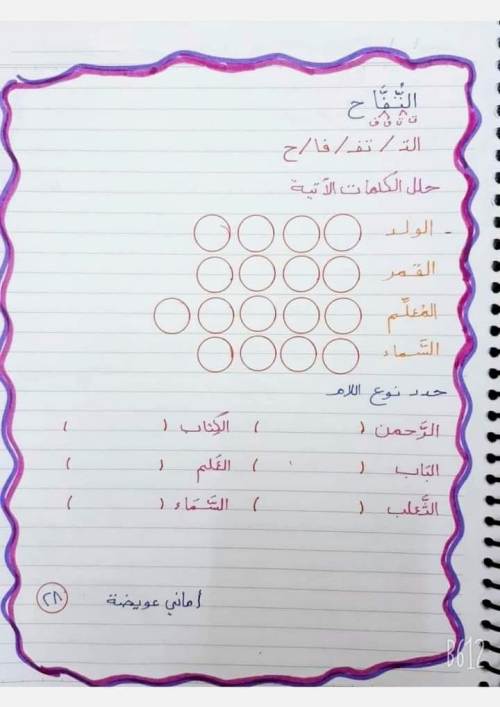 التُّفَّاح
ت ت ف ف
التـ / تفـ / فا / ح
حلل الكلمات الآتية
- الولد
القمر
المُعلِّم
السَّماء
حدد نوع اللام
الرَّحمن ( ) الكِتاب ( )
البَاب ( ) القَلم ( )
الثَّعلب ( ) السَّمَاء ( )
أماني عويضة ٢٨
B612